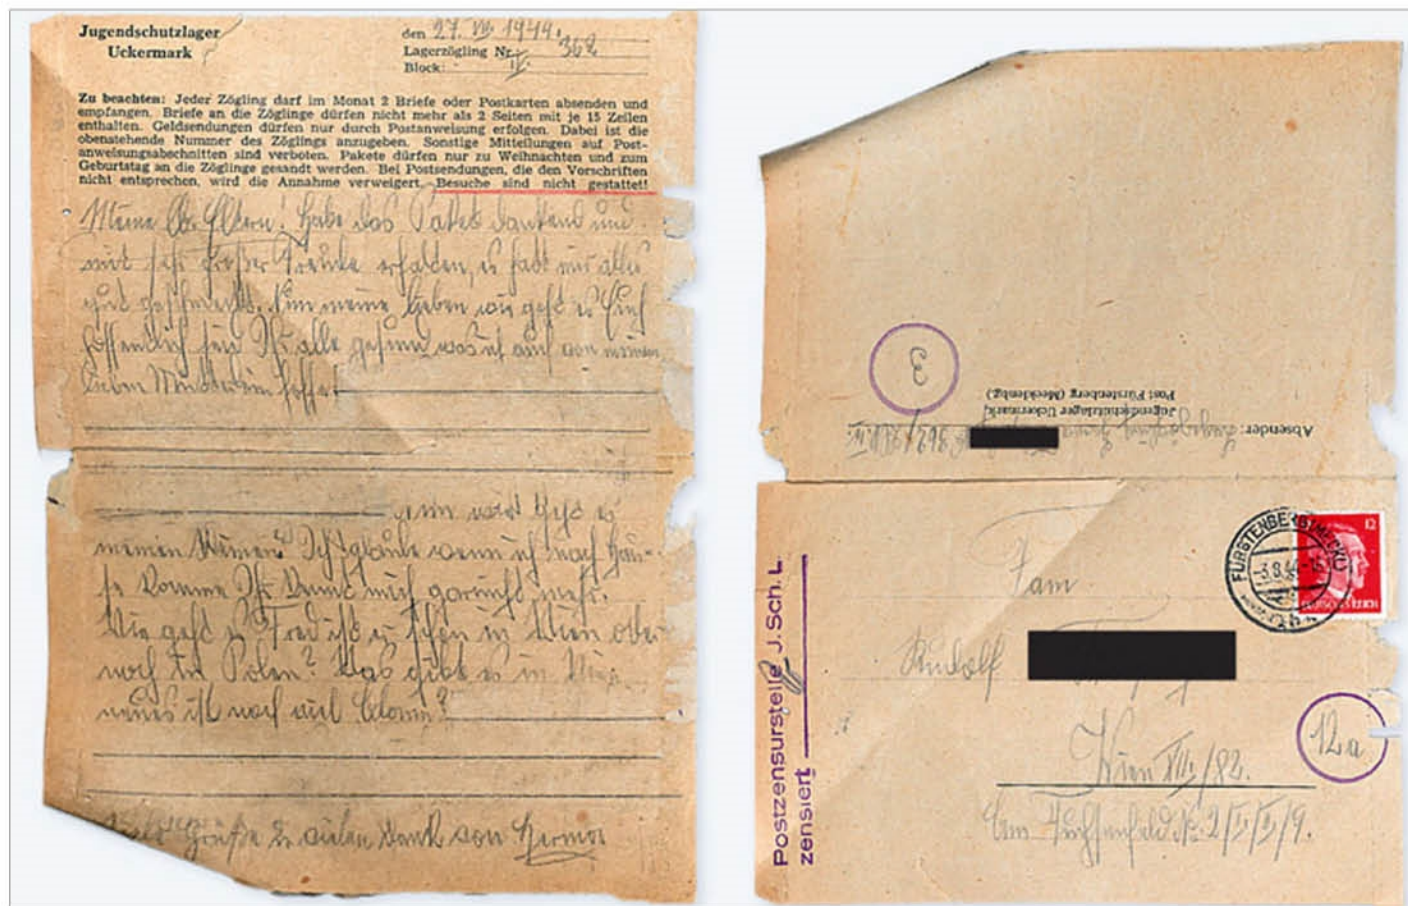 Jugendschutzlager
Uckermark
den 27. VII. 1944.
Lagerzögling Nr.: 362
Block: II.
Zu beachten: Jeder Zögling darf im Monat 2 Briefe oder Postkarten absenden und
empfangen. Briefe an die Zöglinge dürfen nicht mehr als 2 Seiten mit je 15 Zeilen
enthalten. Geldsendungen dürfen nur durch Postanweisung erfolgen. Dabei ist die
obenstehende Nummer des Zöglings anzugeben. Sonstige Mitteilungen auf Post-
anweisungsabschnitten sind verboten. Pakete dürfen nur zu Weihnachten und zum
Geburtstag an die Zöglinge gesandt werden. Bei Postsendungen, die den Vorschriften
nicht entsprechen, wird die Annahme verweigert. Besuche sind nicht gestattet!
Meine lb. Eltern! Habe das Paket dankend und
mit sehr großer Freude erhalten, es hatt mir alles
gut geschmeckt. Nun meine Lieben wie geht es Euch
hoffendlich seid Ihr alle gesund was ich auch von meinen
lieben Mütterlein hoffe
nun was geht es
meinen Ich glaube wenn ich nach Hau-
se komme Ihr kennt mich garnicht mehr.
Wie geht es Fred ist er schon in Wien oder
noch in Polen? Was gibt es in Wien
neues ist noch viel Alarm?
Grüße u. vielen Dank von Herma
3
Absender: 362
Jugendschutzlager Uckermark,
Post Fürstenberg (Mecklenbg.)
Postzensurstelle J. Sch. L.
zensiert
FÜRSTENBERG (MECKL)
-3.8.44-
12
DEUTSCHES REICH
Fam
Rudolf
12a
Wien XII./82.
Am Fuchsenfeld Nr. 2/I/II/9.